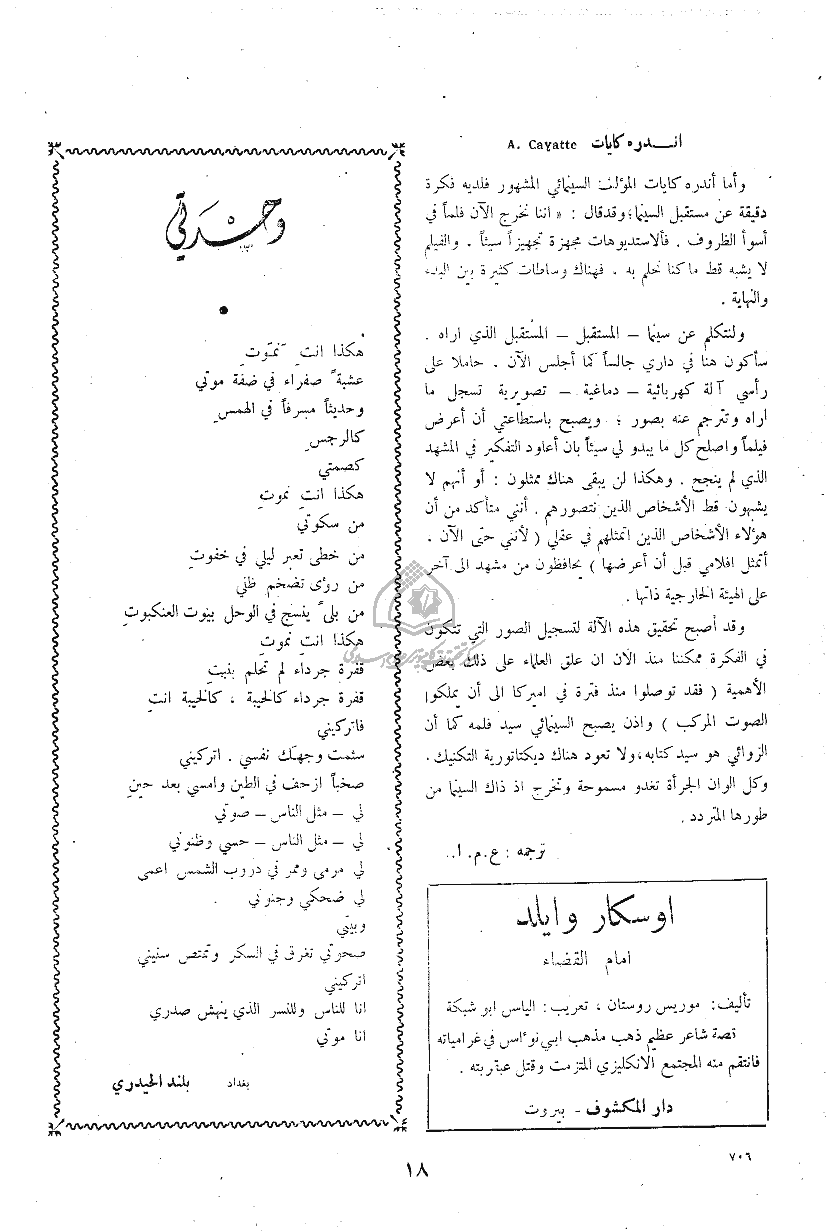 انـــدره كايات A. Cayatte
وأما أندره كايات المؤلف السينمائي المشهور فلديه فكرة
دقيقة عن مستقبل السينما؛ وقدقال : « اننا نخرج الآن فلماً في
أسوأ الظروف . فالاستديوهات مجهزة تجهيزاً سيئاً . والفيلم
لا يشبه قط ما كنا نحلم به . فهناك وساطات كثيرة بين البدء
والنهاية .
ولنتكلم عن سينما – المستقبل – المستقبل الذي اراه .
سأكون هنا في داري جالساً كما أجلس الآن . حاملا على
رأسي آلة كهربائية – دماغية – تصويرية تسجل ما
اراه وتترجم عنه بصور ؛ ويصبح باستطاعتي أن أعرض
فيلماً واصلح كل ما يبدو لي سيئاً بان أعاود التفكير في المشهد
الذي لم ينجح . وهكذا لن يبقى هناك ممثلون : أو أنهم لا
يشبهون قط الأشخاص الذين نتصورهم . أنني متأكد من أن
هؤلاء الأشخاص الذين اتمثلهم في عقلي ( لأنني حتى الآن .
أتمثل افلامي قبل أن أعرضها ) يحافظون من مشهد الى آخر
على الهيئة الخارجية ذاتها .
وقد أصبح تحقيق هذه الآلة لتسجيل الصور التي تتكون
في الفكرة ممكننا منذ الان ان علق العلماء على ذلك بعض
الأهمية ( فقد توصلوا منذ فترة في اميركا الى أن يملكوا
الصوت المركب ) واذن يصبح السينمائي سيد فلمه كما أن
الروائي هو سيد كتابه، ولا تعود هناك ديكتاتورية التكنيك .
وكل الوان الجرأة تغدو مسموحة وتخرج اذ ذاك السينما من
طورها المتردد .
ترجمه : ع . م . ا ..
اوسكار وايلد
امام القضاء
تأليف: موريس روستان ، تعريب : الياس ابو شبكة
قصة شاعر عظيم ذهب مذهب ابي نوءاس في غرامياته
فانتقم منه المجتمع الانكليزي المتزمت وقتل عبقريته .
دار المكشوف - بيروت
وحدتي
هكذا انتِ تموتِ
عشبةً صفراء في ضفة موتي
وحديثاً مسرفاً في الهمسِ
كالرجسِ
كصمتي
هكذا انتِ تموتِ
من سكوتي
من خطى تعبر ليلي في خفوتِ
من روى تضخم ظني
من بلىً ينسج في الوحل بيوت العنكبوتِ
هكذا انت تموتِ
قفرة جرداء لم تحلم بنبتِ
قفرة جرداء كالخيبة ، كالخيبة انتِ
فاتركيني
سئمت وجهك نفسي . اتركيني
صخباً ازحف في الطين وامسي بعد حينِ
لي – مثل الناس – صوتي
لي – مثل الناس – حسي وظنوني
لي مرمى وممر في دروب الشمس اعمى
لي ضحكي وجنوني .
وبيتي
صحوتي تغرق في السكر وتمتص سنيني
اتركيني
انا للناس وللنسر الذي ينهش صدري
انا موتي
بغداد بلند الحيدري
٧٠٦
١٨